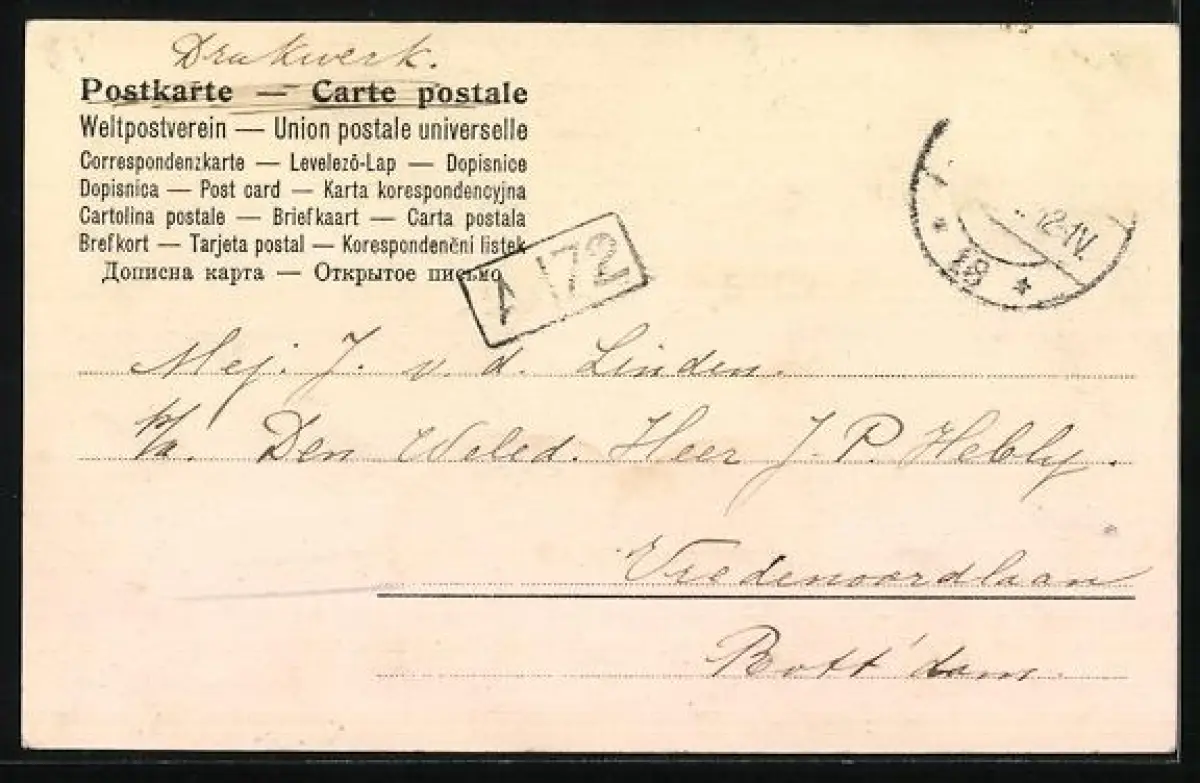 Drukwerk.
Postkarte — Carte postale
Weltpostverein — Union postale universelle
Correspondenzkarte — Levelező-Lap — Dopisnice
Dopisnica — Post card — Karta korespondencyjna
Cartolina postale — Briefkaart — Carta postala
Brefkort — Tarjeta postal — Korespondenčni listek
Дописна карта — Открытое письмо
A 72
12-1V.
18
Mej. J. v. d. Linden.
p/a. Den Weled. Heer J. P. Hebly.
Vredenoordlaan
Rott'dam.